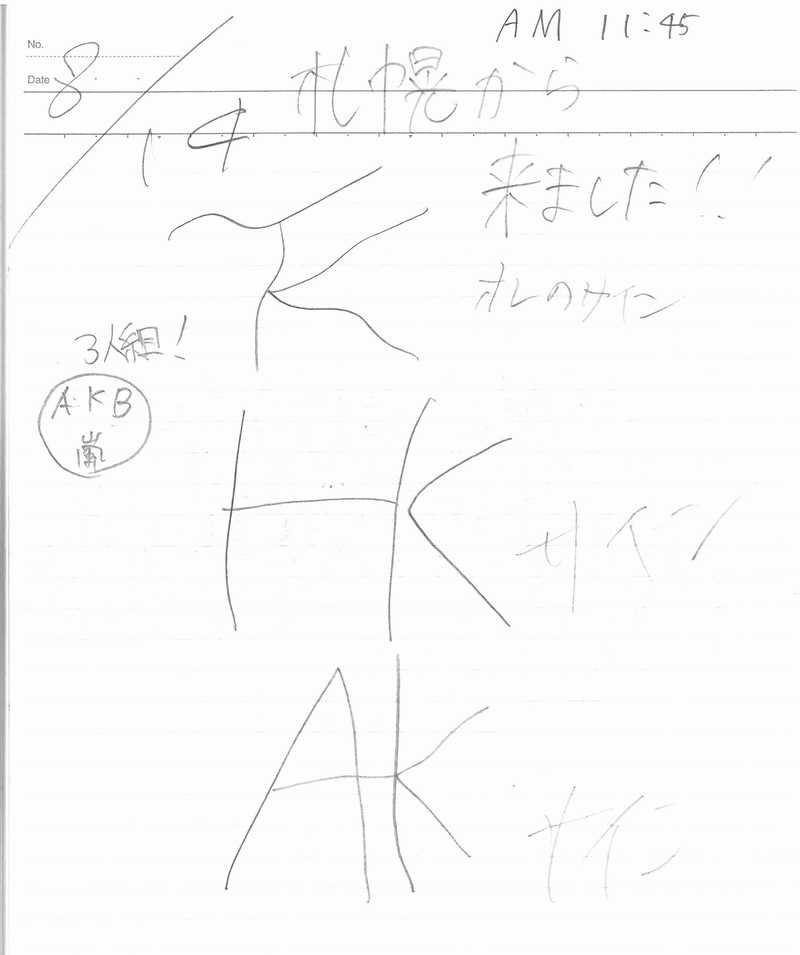 AM 11:45
No.
Date 8/14
札幌から
来ました!!
オレのサイン
TK
3人組!
AKB
嵐
HK サイン
AK サイン